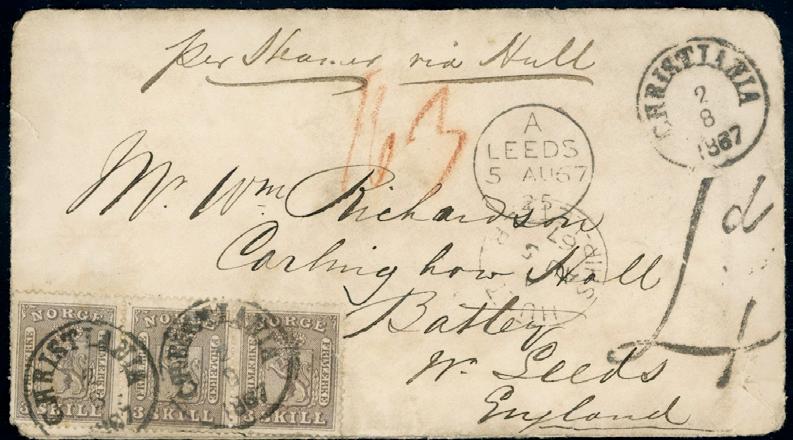 per Steamer via Hull
CHRISTIANIA
2
8
1867
A
LEEDS
5 AU 67
25
HULL
SHIP-
67
Mr. Wm Richardson
Carlinghow Hall
Batley
Nr. Leeds
England
4d
NORGE
FRIMERKE
3 SKILL
NORGE
FRIMERKE
3 SKILL
NORGE
FRIMERKE
3 SKILL
CHRISTIANIA
8
1867
CHRISTIANIA
8
1867